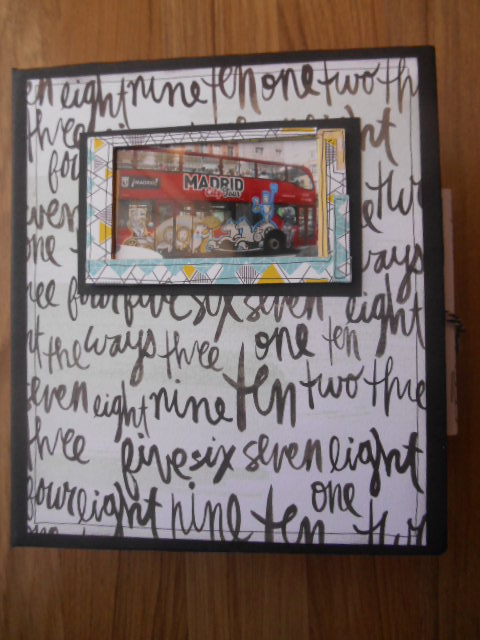 eight nine ten one two
three
¡MADRID!
MADRID
City Tour
one
ways
four five six seven eight
the ways three one ten
seven eight nine ten two three
three five six seven eight
four eight nine ten one two